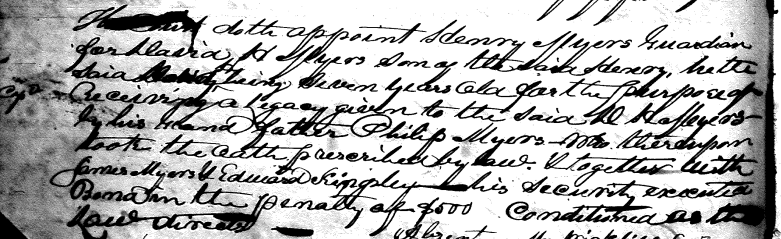 The Court doth appoint Henry Myers Guardian
for David H Myers Son of the said Henry, he the
said David being Seven Years Old for the purpose of
receiving a legacy given to the said D H Myers
by his Grand father Philip Myers who thereupon
took the oath prescribed by law. & together with
James Myers & Edward Kingsley his security executed
Bond in the penalty of $500 Conditioned as the
Law directs
Absent